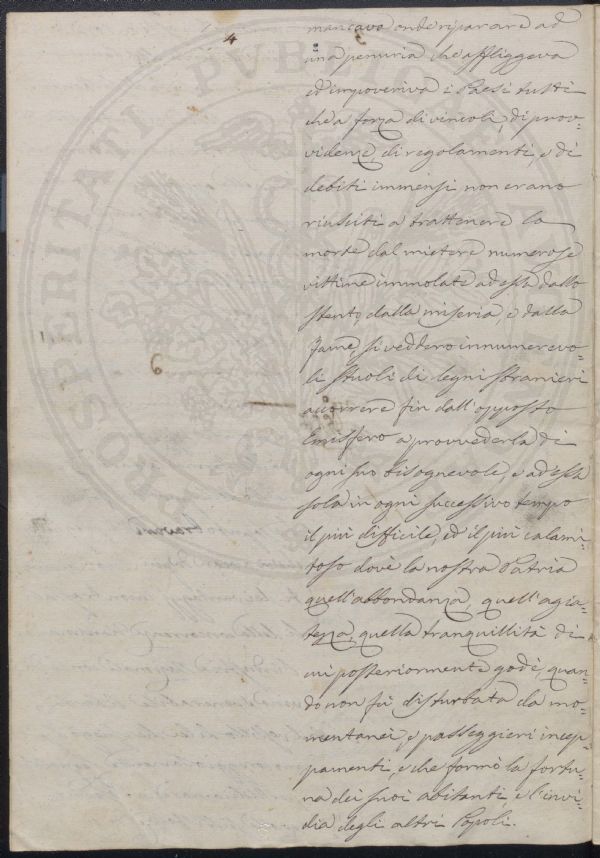 4
mancavo onde riparare ad
una penuria che affliggeva
ed impoveriva i Paesi tutti
che a forza di vincoli, di prov=
videnze, di regolamenti, e di
debiti immensi non erano
riusciti a trattenere la
morte dal mietere numerose
vittime immolate ad essa dallo
stento, dalla miseria, e dalla
fame, si veddero innumerevo=
li stuoli di legni stranieri
accorrere fin dall'opposto
Emisfero a provvederla di
ogni suo bisognevole, e ad essa
sola in ogni successivo tempo
il più difficile, ed il più calami=
toso dovè la nostra Patria
quell'abbondanza, quell'agia=
tezza, quella tranquillità di
cui posteriormente godè, quan=
do non fù disturbata da mo=
mentanei, e passeggieri incep=
pamenti, e che formò la fortu=
na dei suoi abitanti, e l'invi=
dia degli altri Popoli.
6
PROSPERITATI PUBLICAE